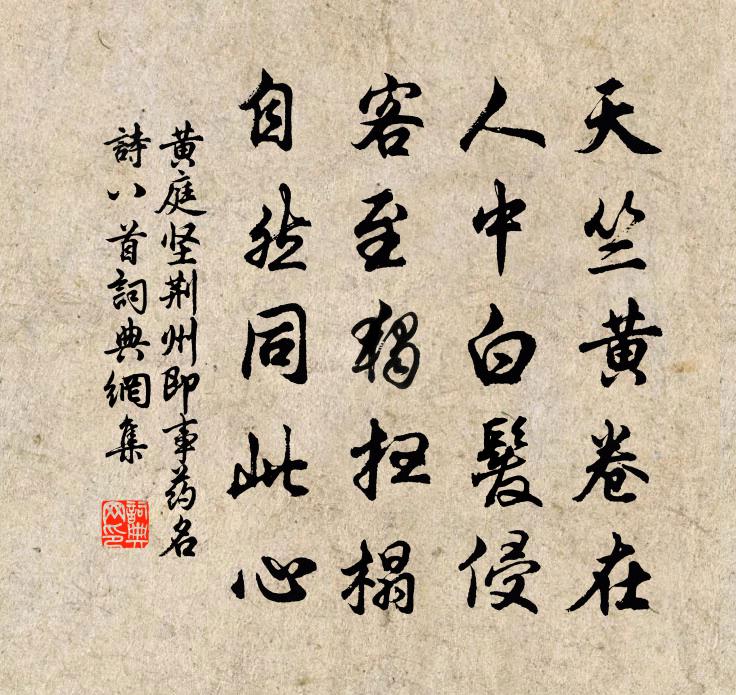 天竺黄卷在
人中白髮侵
客至獨扫榻
自然同此心
黄庭坚荆州即事药名
詩八首詞典網集
詞典
网印